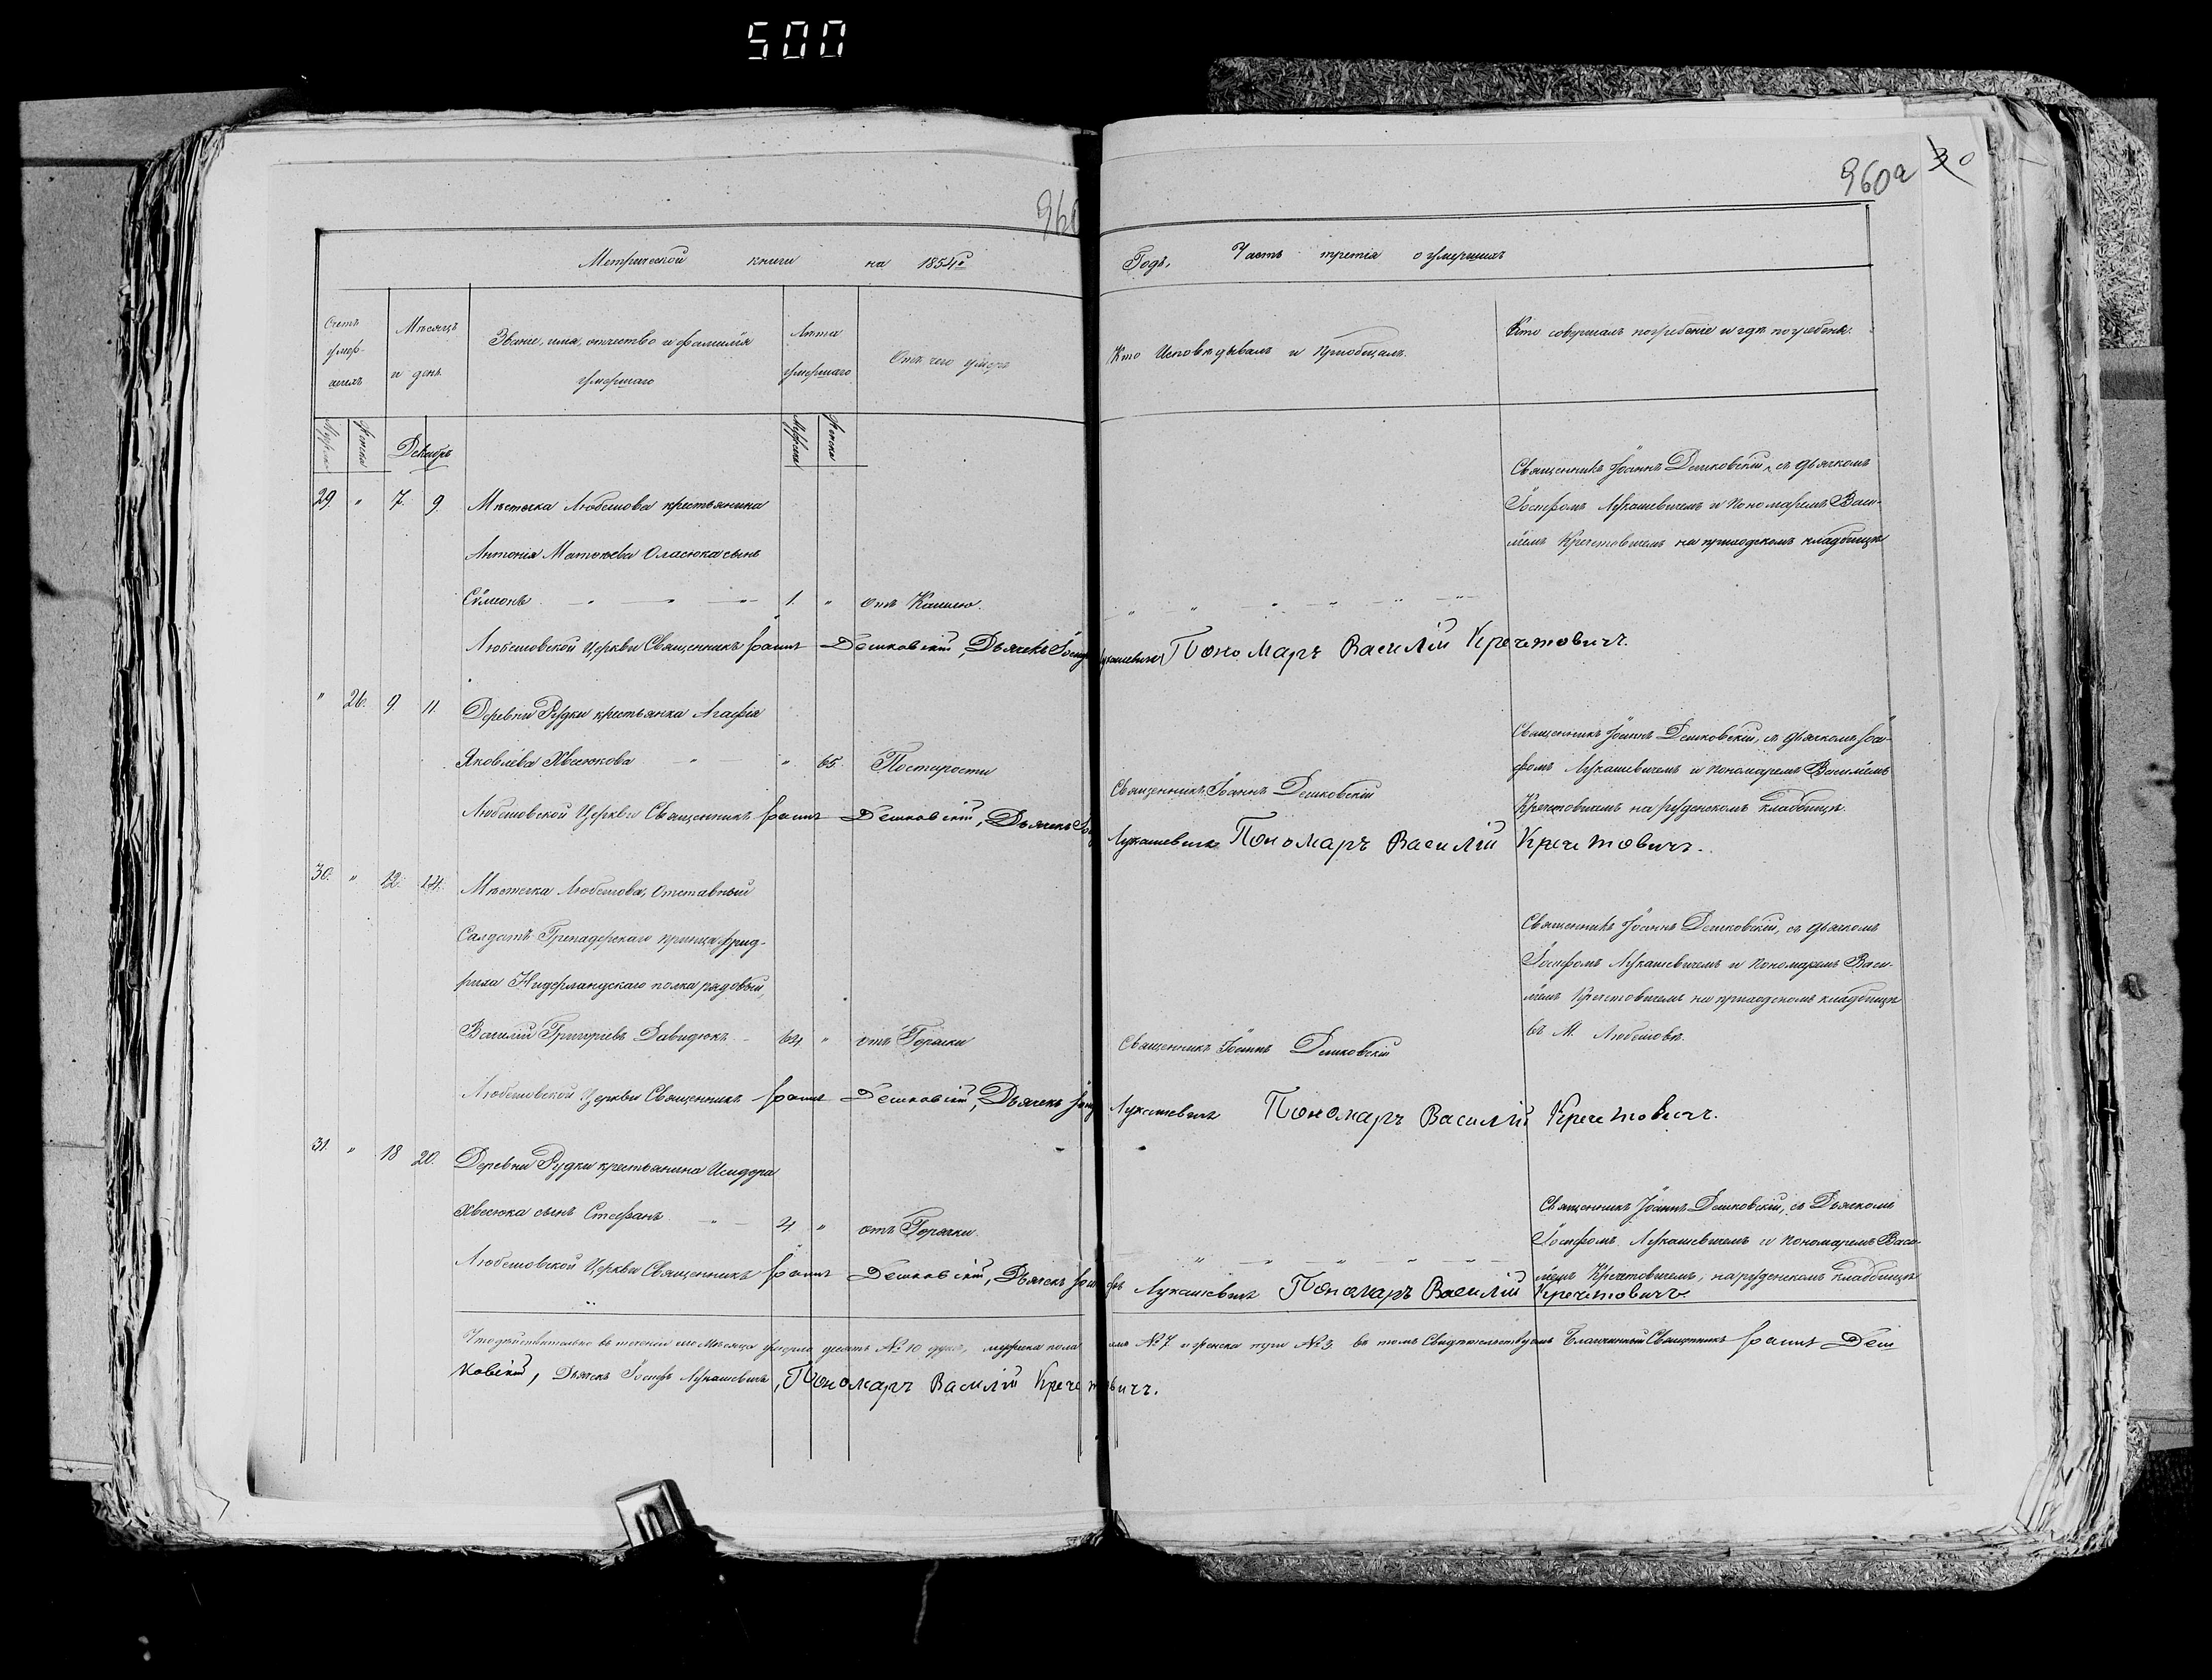 500
960
960а 30
Метрической книги на 1854й
Годъ, Часть третія о умершихъ
Счетъ умер-шихъ
Мѣсяцъ и день
Званіе, имя, отчество и фамилія умершаго
Лѣта умершаго
Отъ чего умеръ
Кто Исповѣдывалъ и пріобщалъ.
Кто совершалъ погребеніе и гдѣ погребены.
Мужска Женска
Декабрь
Мужска Женска
29. " 7. 9. Мѣстечка Любешова крестьянина
Антонія Матѳеева Оласюка сынъ
Сѵмеонъ 1. " отъ Кашлю.
Священникъ Іоаннъ Дешковскій, съ дьячкомъ
Іосифомъ Лукашевичемъ и пономаремъ Васи-
ліемъ Кречетовичемъ на приходскомъ кладбищѣ
Любешовской Церкви Священникъ Іоаннъ Дешковскій, Дьячекъ Лукашевичъ Пономарь Василій Кречетовичъ.
" 26. 9. 11. Деревни Рудки крестьянка Агафія
Яковлева Хвесюкова " 65. По старости
Священникъ Іоаннъ Дешковскій
Священникъ Іоаннъ Дешковскій, съ дьячкомъ Іоси-
фомъ Лукашевичемъ и пономаремъ Василіемъ
Кречетовичемъ на рудскомъ кладбищѣ.
Любешовской Церкви Священникъ Іоаннъ Дешковскій, Дьячекъ Лукашевичъ Пономарь Василій Кречетовичъ.
30. " 12. 14. Мѣстечка Любешова, Отставный
Салдатъ Гренадерскаго принца Фрид-
риха Нидерландскаго полка рядовый,
Василій Григоріевъ Давидюкъ 64. " отъ Горячки
Священникъ Іоаннъ Дешковскій
Священникъ Іоаннъ Дешковскій, съ дьячкомъ
Іосифомъ Лукашевичемъ и пономаремъ Васи-
ліемъ Кречетовичемъ на приходскомъ кладбищѣ
въ М. Любешовѣ.
Любешовской Церкви Священникъ Іоаннъ Дешковскій, Дьячекъ Лукашевичъ Пономарь Василій Кречетовичъ.
31. " 18 20. Деревни Рудки крестьянина Исидора
Хвесюка сынъ Стефанъ 4 " отъ Горячки.
Священникъ Іоаннъ Дешковскій, съ Дьячкомъ
Іосифомъ Лукашевичемъ и пономаремъ Васи-
ліемъ Кречетовичемъ, на рудскомъ кладбищѣ
Любешовской Церкви Священникъ Іоаннъ Дешковскій, Дьячекъ Іосифъ Лукашевичъ Пономарь Василій Кречетовичъ.
Что дѣйствительно въ теченіи сего Мѣсяца умерло десять № 10 душъ, мужска пола № 7 и женска три № 3. въ томъ Свидѣтельствуемъ Благочинный Священникъ Іоаннъ Деш
ковскій, Дьячекъ Іосифъ Лукашевичъ, Пономарь Василій Кречетовичъ.